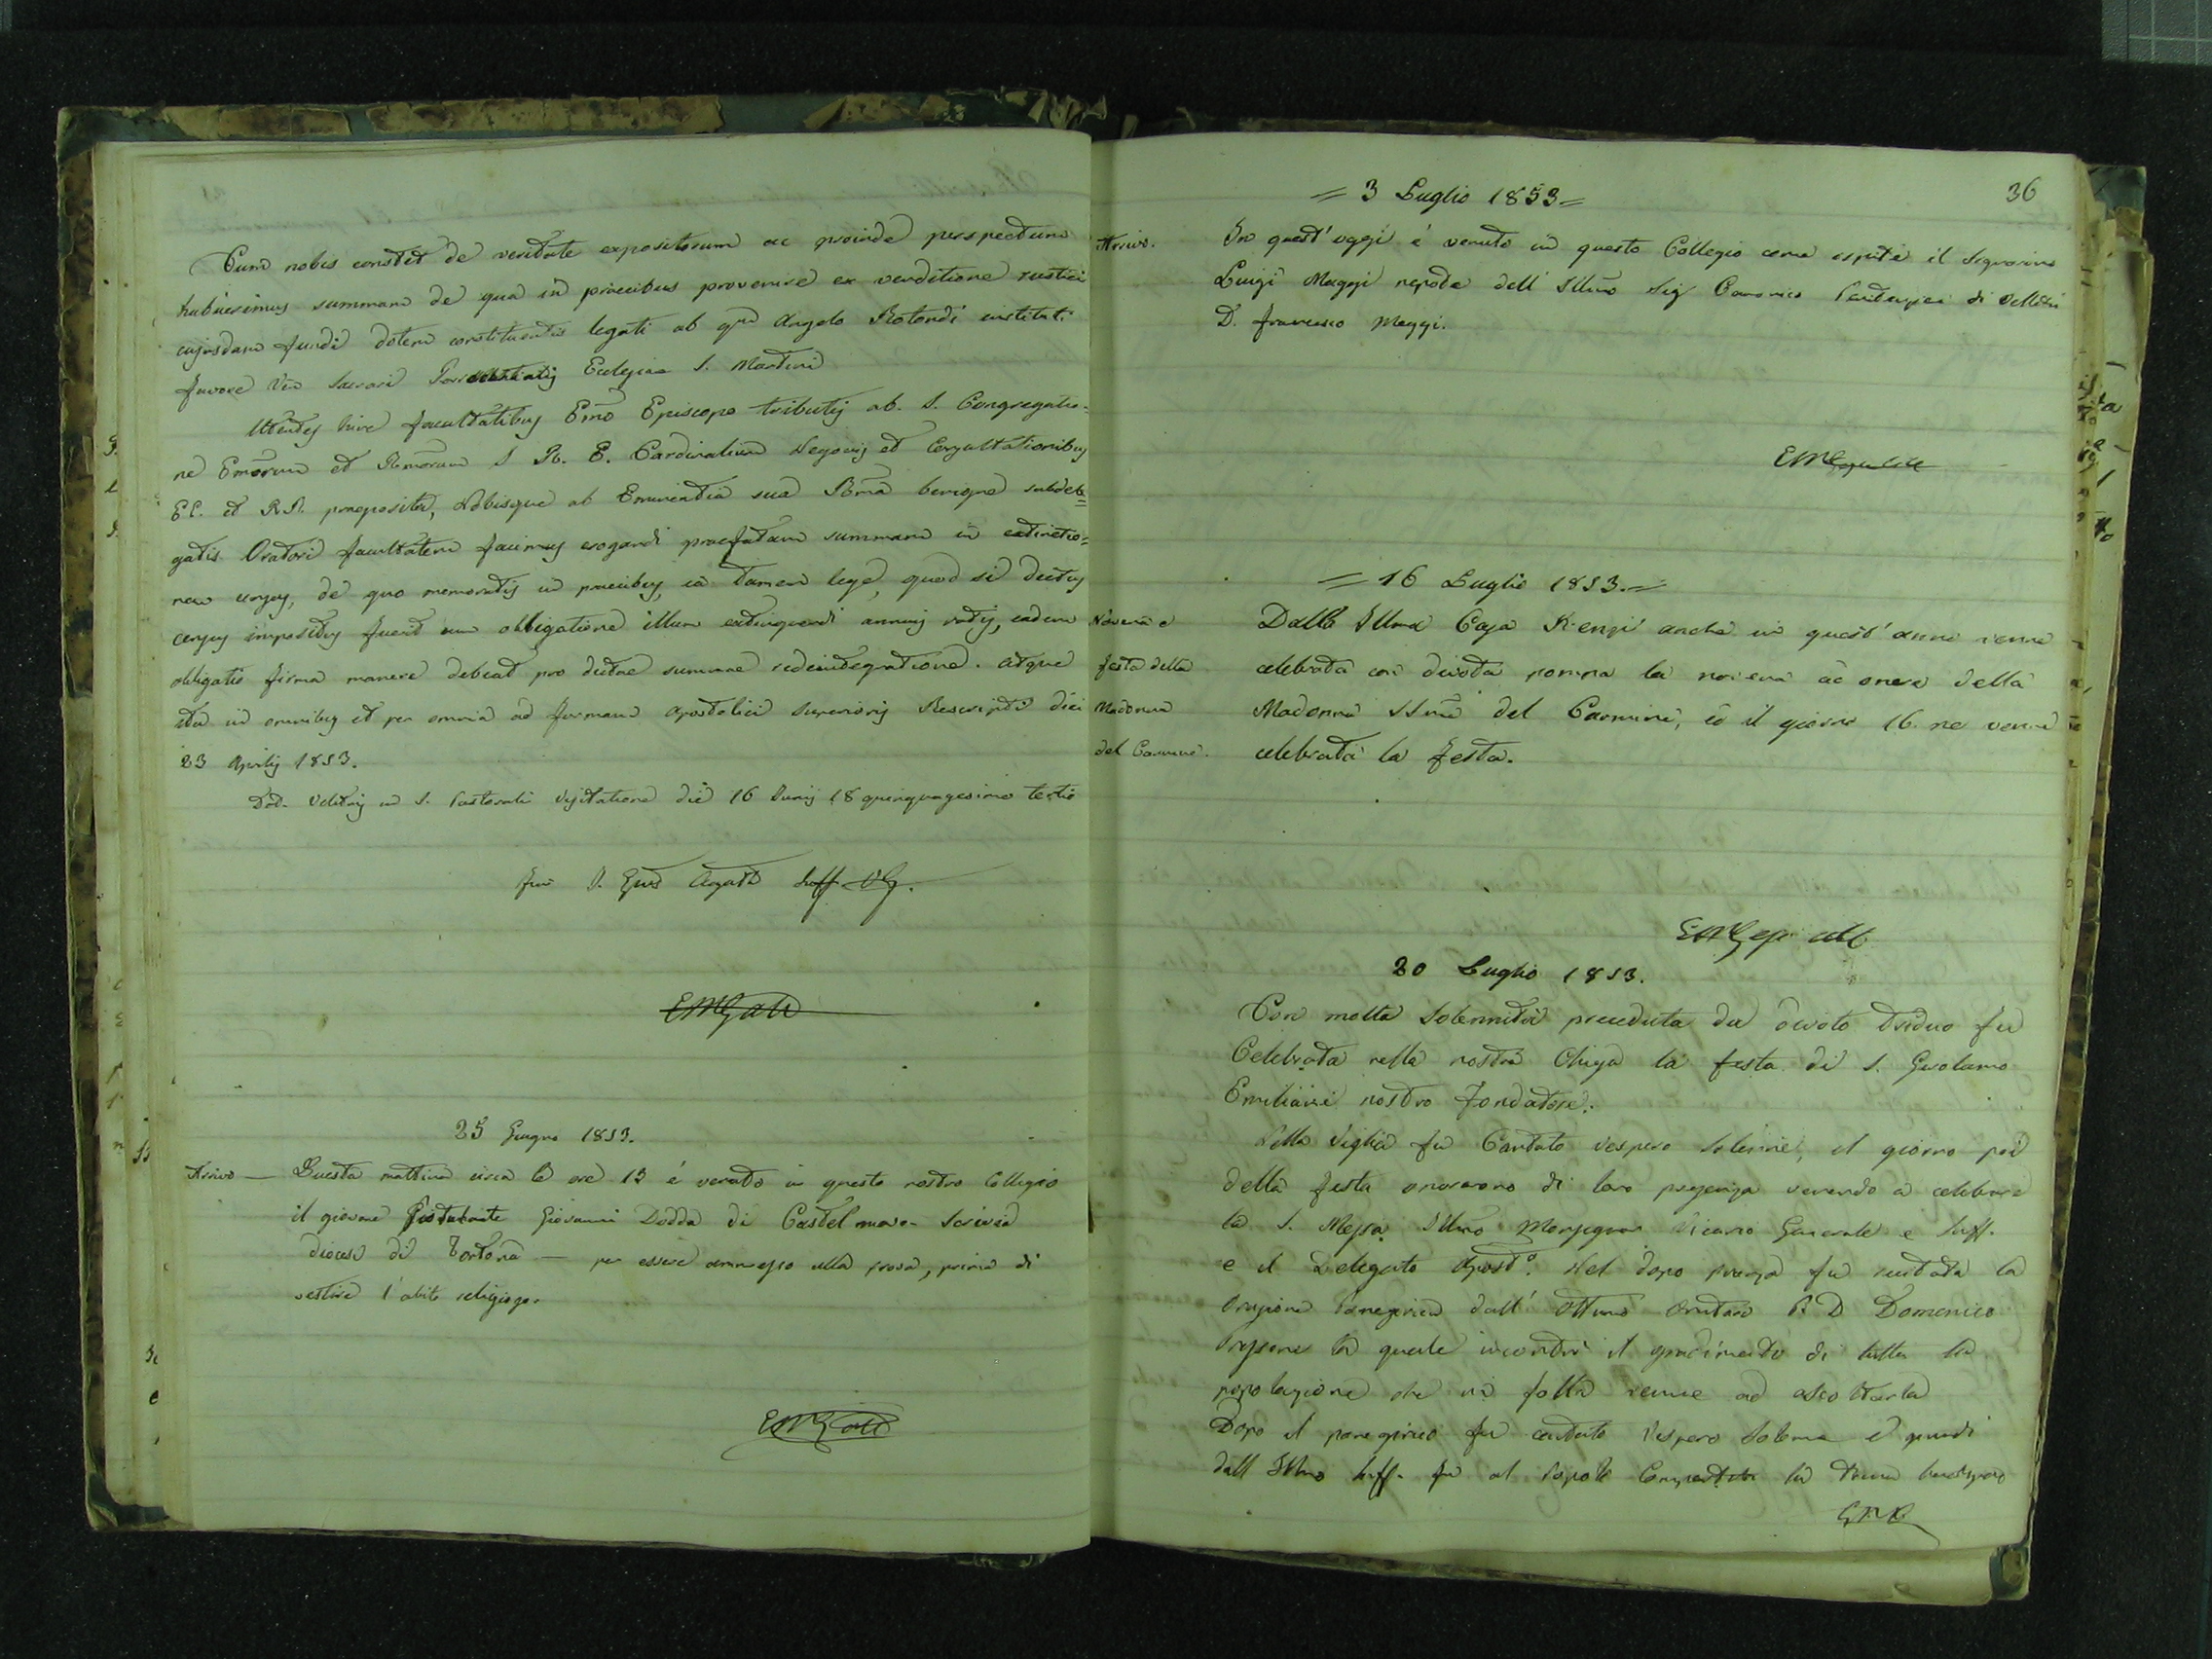 Cum nobis constet de veritate expositorum ac proinde perspectum
habuerimus summam de qua in praecibus provenire ex venditione rustici
cujusdam fundi dotem constituentis legati ab qm̄ Angelo Rotondi institut.
favore Ven Sacrari Ecclesiae S. Martini
Utentes hisce facultatibus Emō Episcopo tributis ab S. Congregatio=
ne Emōrum et Rmōrum S R. E. Cardinalium Negociis et Consultationibus
EE. et R.R. praeposita, Nobisque ab Eminentia sua Rma benigne subdele=
gatis Oratori facultatem facimus erogandi praefatam summam in extinctio=
nem census, de quo memoratis in praecibus, ea tamen lege, quod si dictus
census impositus fuerit cum obligatione illum extinguendi annuis ratis, eadem
obligatio firma manere debeat pro dictae summae redintegratione. atque
ita in omnibus et per omnia ad formam Apostolici Superioris Rescripti diei
23 Aprilis 1853.
Dat. Velitris in S. Pastorali Visitatione die 16 Junii 18 quinquagesimo tertio
Agata Suff. VG.
25 Giugno 1853.
Arrivo — Questa mattina circa le ore 13 é venuto in questo nostro Collegio
il giovane Postulante Giovanni Dodda di Castelnuovo Scrivia
diocesi di Tortona — per essere ammesso alla prova, prima di
vestire l'abito religioso.
36
= 3 Luglio 1853 =
Arrivo. In quest'oggi é venuto in questo Collegio come ospite il Signorino
Luigi Maggi nepote dell Illmo Sig Canonico Penitenziere di Velletri
D. Francesco Maggi.
= 16 Luglio 1853. =
Novena e Dalla Illma Casa Rienzi anche in quest'anno venne
festa della celebrata con divota pompa la novena ad onore della
Madonna Madonna SSma del Carmine, e il giorno 16. ne venne
del Carmine. celebrata la festa.
20 Luglio 1853.
Con molta solennità preceduta da divoto triduo fu
Celebrata nella nostra Chiesa la festa di S. Girolamo
Emiliani nostro Fondatore.
Nella Vigilia fu Cantato vespero solenne, il giorno poi
della festa onorarono di loro presenza venendo a celebrare
la S. Messa Illmo Monsignor Vicario Generale e Suff.
e il Delegato Apost.º Nel dopo pranzo fu recitata la
Orazione Panegirica dall' ottimo Oratore R D Domenico
la quale incontrò il gradimento di tutta la
popolazione che in folla venne ad ascoltarla
Dopo il panegirico fu cantato Vespero Solenne e quindi
dall Illmo Suff. fu al Popolo Compartita la trina